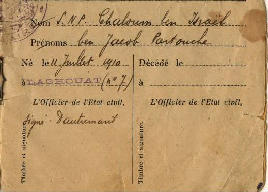 Nom S.N.P. Chaloum ben Israël
Prénoms ben Jacob Partouche
Né le 11 Juillet 1910
à LAGHOUAT (n° 7)
Décédé le
à
L'Officier de l'Etat civil,
signé Dautremant
Timbre et signature.
L'Officier de l'Etat civil,
Timbre et signature.